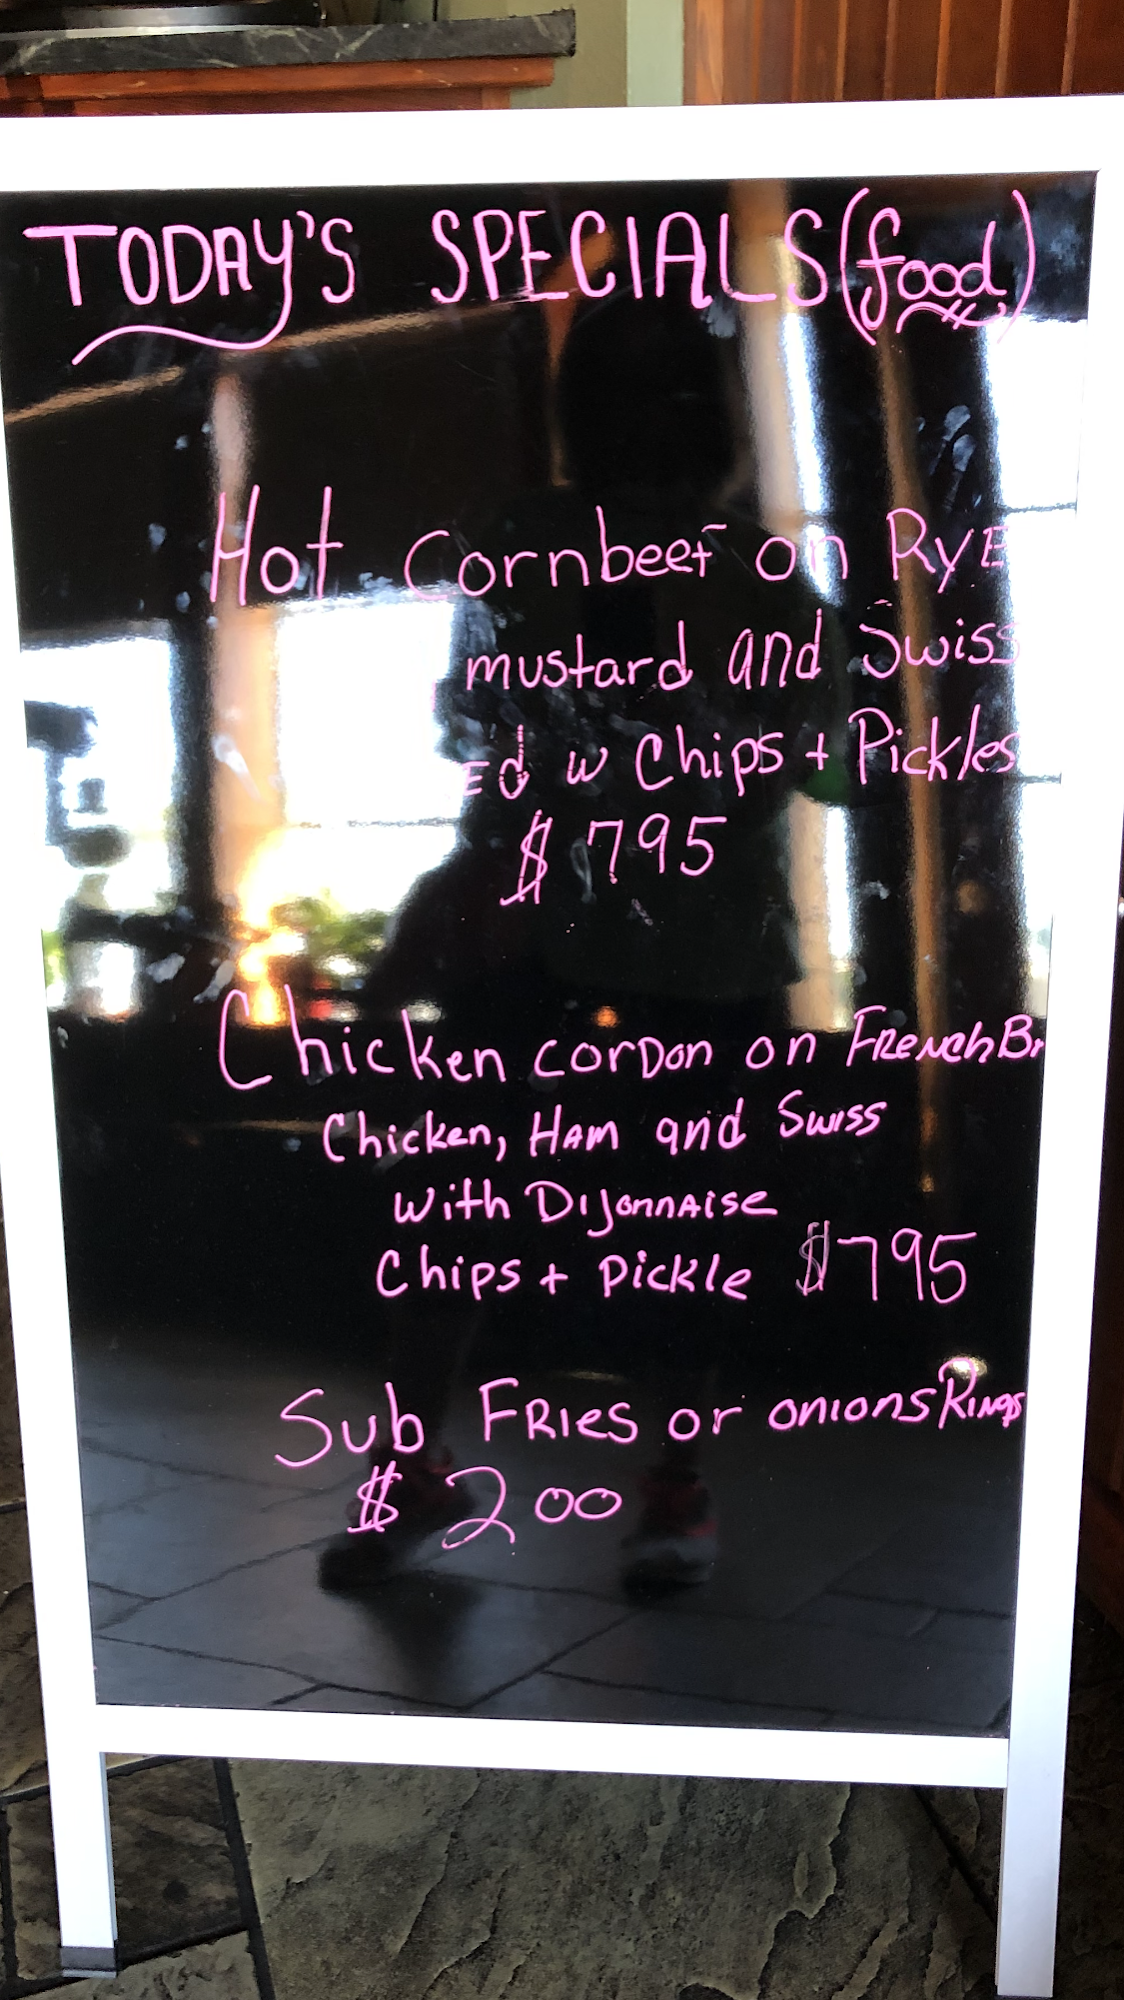 TODAY'S SPECIALS (food)
Hot Cornbeef on RYE
mustard and Swiss
w Chips + Pickles
$ 795
Chicken CorDon on FRENCH Br
Chicken, HAM and Swiss
with DIJonnAise
Chips + Pickle $795
Sub FRIES or onions Rings
$ 200